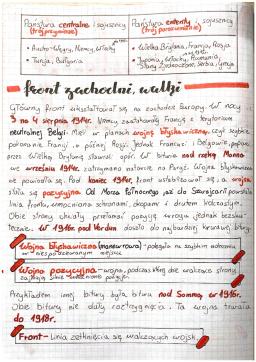 Państwa centralne i sojusznicy
(trójprzymierze)
Państwa ententy i sojusznicy
(trójporozumienie)
• Austro-Węgry, Niemcy, Włochy
• Turcja, Bułgaria
• Wielka Brytania, Francja, Rosja
• Japonia, Włochy, Rumunia,
Stany Zjednoczone, Serbia, Grecja
front zachodni, walki
Główny front ukształtował się na zachodzie Europy. W nocy
3 na 4 sierpnia 1914r. Niemcy zaatakowały Francję z terytorium
neutralnej Belgii. Mieli w planach wojnę błyskawiczną, czyli szybkie
pokonanie Francji, a później Rosji. Jednak Francuzi i Belgowie, poparci
przez Wielką Brytanię stawiali opór. W bitwie nad rzeką Marną
we wrześniu 1914r. zatrzymano natarcie na Paryż. Wojna błyskawiczna
się nie powiodła. Pod koniec 1914r. front ustabilizował się, a wojna
stała się pozycyjną. Od Morza Północnego aż do Szwajcarii powstała
linia frontu, wzmocniona schronami, okopami i drutem kolczastym.
Obie strony chciały przełamać pozycję wroga, jednak bezsku-
tecznie. W 1916r. pod Verdun doszło do najbardziej krwawej bitwy.
Wojna błyskawiczna (manewrowa) - polegała na szybkim natarciu
w miejscu
Wojna pozycyjna - wojna, podczas której dwie walczące strony
zajmują silnie umocnione pozycje.
Przykładem innej bitwy była bitwa nad Sommą, w 1916r.
Obie bitwy nie dały rozstrzygnięcia. Ta wojna trwała
do 1918r.
Front - Linia zetknięcia się walczących wojsk